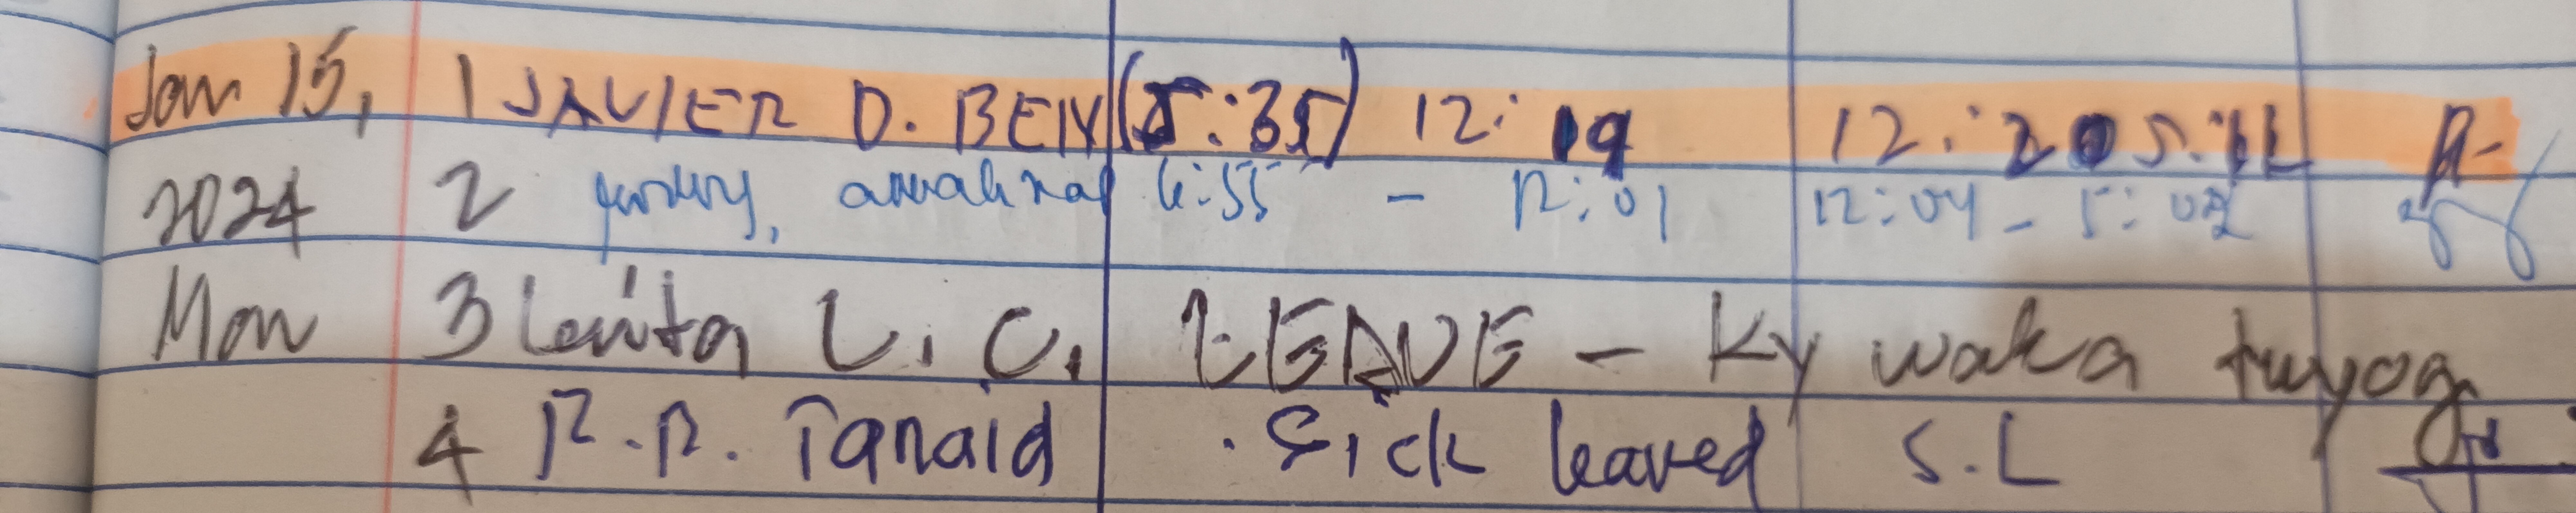 Jan 15, 1 JAVIER D. BEN (5:35) 12:19 12:20 5:12
2024 2 6:55 - 12:01 12:04 - 5:02
Mon 3 Lenita L. C. LEAVE - Ky waka tuyog
4 R.R. Tanaid . Sick leaved S.L